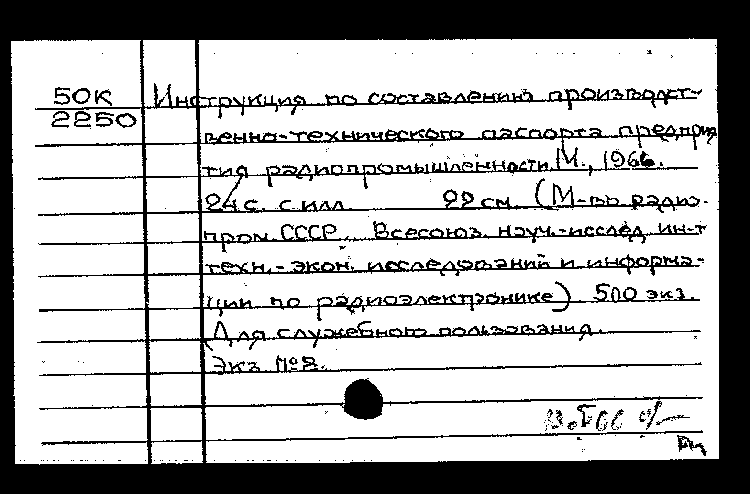 50К
2250
Инструкция по составлению производст-
венно-технического паспорта предприя
тия радиопромышленности. М., 1966.
24 с. с илл. 22 см. (М-во радио-
пром. СССР. Всесоюз. науч.-исслед. ин-т
техн.-экон. исследований и информа-
ции по радиоэлектронике) 500 экз.
Для служебного пользования.
Экз. №8.